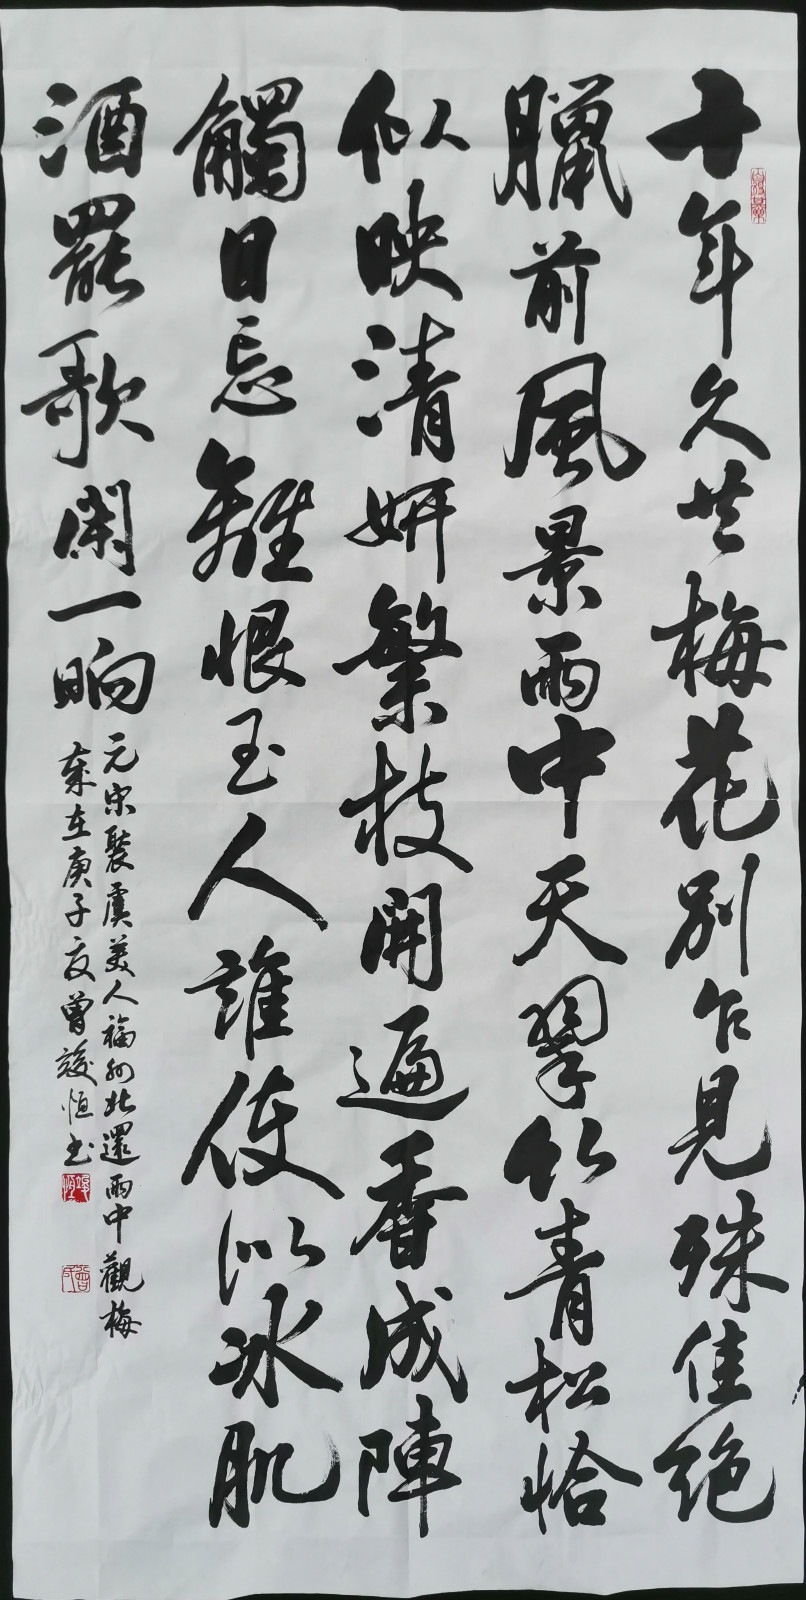 十年久共梅花别乍見殊佳绝
臘前風景雨中天翠竹青松恰
似映清妍繁枝開遍香成陣
觸目忘離恨玉人誰使似冰肌
酒罷歌闌一晌
元宋褧虞美人福州北還雨中觀梅
歲在庚子夏曾竣恒书